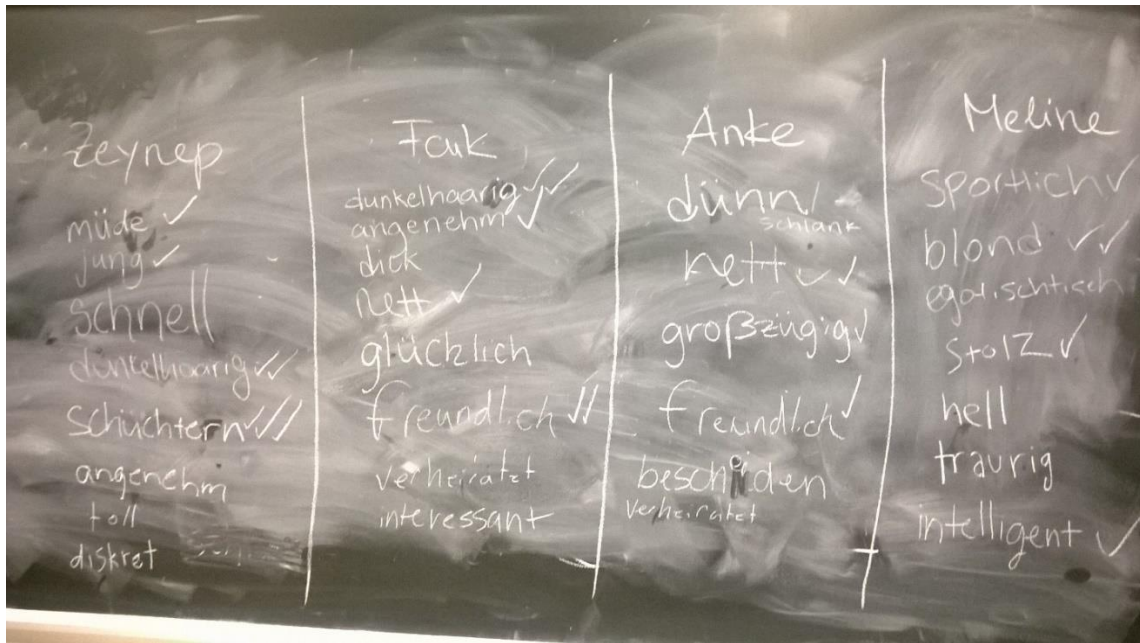 Zeynep
müde ✓
jung ✓
schnell
dunkelhaarig ✓✓
schüchtern ✓✓✓
angenehm
toll
diskret
Fauk
dunkelhaarig ✓✓
angenehm ✓
dick
nett ✓
glücklich
freundlich ✓✓
verheiratet
interessant
Anke
dünn/
schlank
nett ✓✓
großzügig ✓
freundlich ✓
bescheiden
verheiratet
Meline
sportlich ✓
blond ✓✓
egoischtisch
stolz ✓
hell
traurig
intelligent ✓